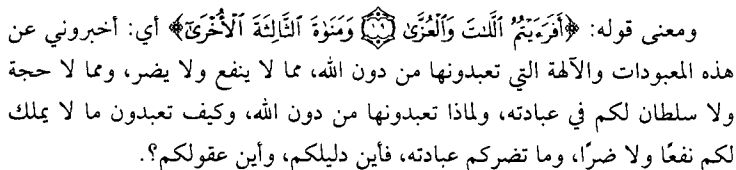 ومعنى قوله: ﴿أَفَرَءَيْتُمُ ٱللَّـٰتَ وَٱلْعُزَّىٰ ۝١٩ وَمَنَوٰةَ ٱلثَّالِثَةَ ٱلْأُخْرَىٰٓ﴾ أي: أخبروني عن
هذه المعبودات والآلهة التي تعبدونها من دون الله، مما لا ينفع ولا يضر، ومما لا حجة
ولا سلطان لكم في عبادته، ولماذا تعبدونها من دون الله، وكيف تعبدون ما لا يملك
لكم نفعًا ولا ضرًا، وما تضركم عبادته، فأين دليلكم، وأين عقولكم؟.